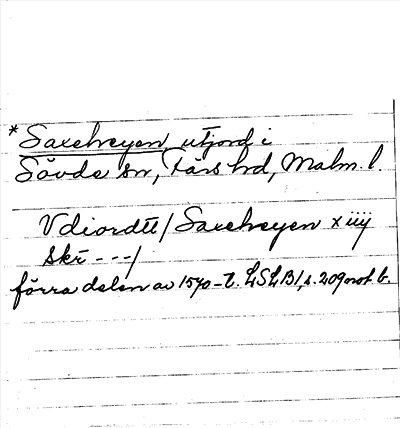 *Saxehveyen, utjord i
Sövde sn, Färs hd, Malm. l.
Vdiordtt / Saxehveyen xiiij
skr - - - /
förra delen av 1570-t. LSLB1, s. 209 not b.